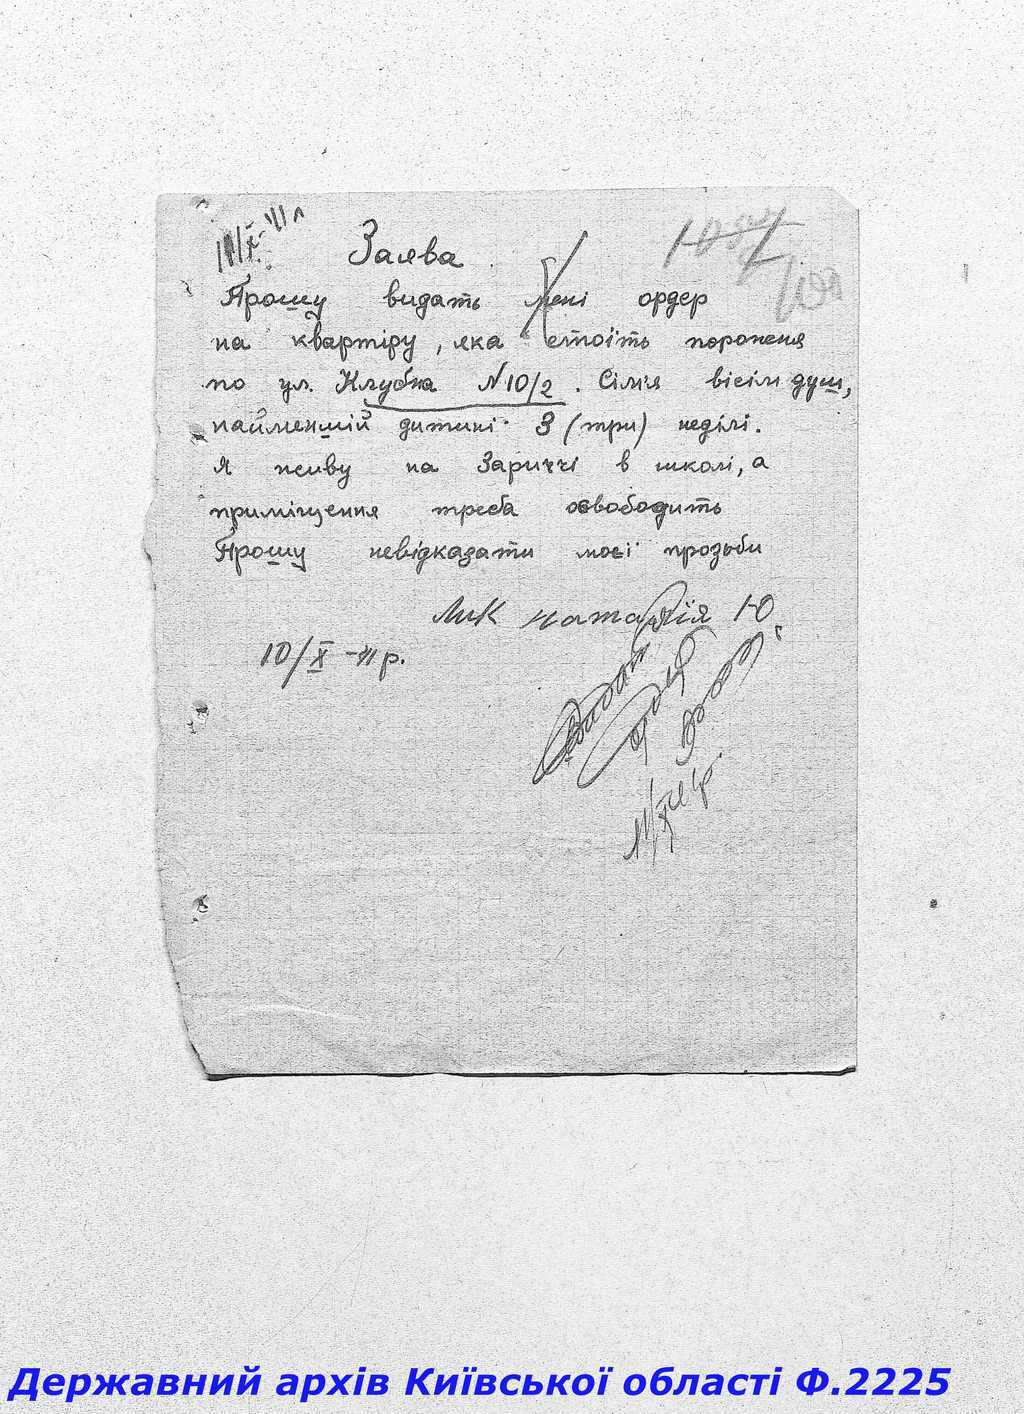 Заява
Прошу видать мені ордер
на квартіру, яка стоїть порожня
по ул. Клубна N 10/2. Сімія вісім душ,
найменшій дитині 3 (три) неділі.
Я живу на Заріччі в школі, а
приміщення треба освободить
Прошу невідказати моєї прозьби
Лик Наталія
10/X-41 р.
Державний архів Київської області Ф.2225